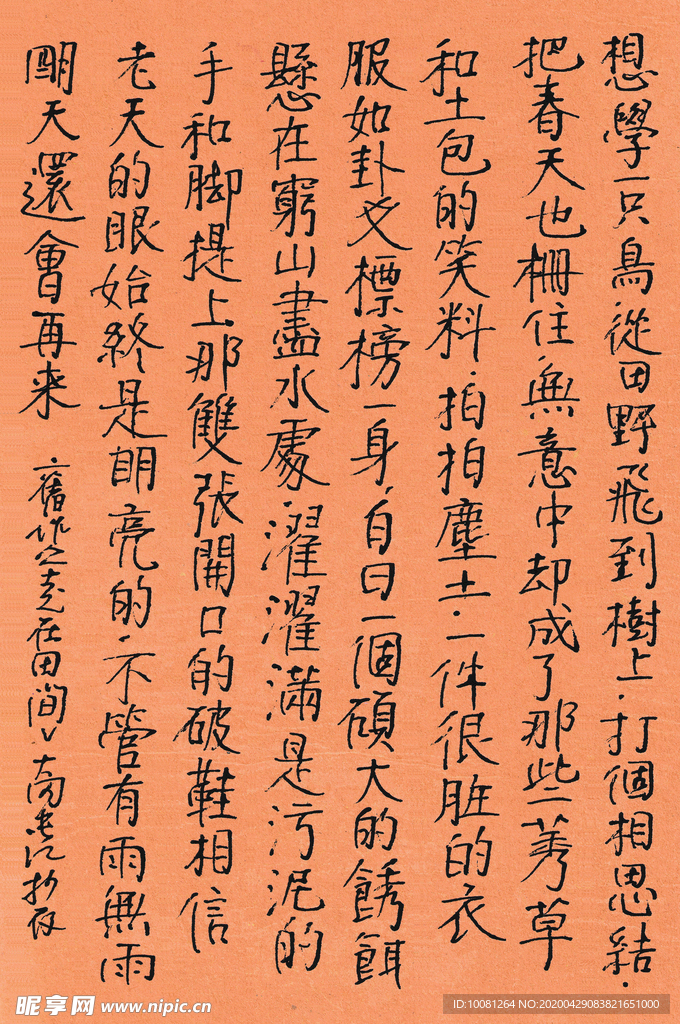 想學一只鳥從田野飛到樹上·打個相思結·
把春天也柵住·無意中却成了那些莠草
和土包的笑料·拍拍塵土·一件很脏的衣
服如卦爻標榜一身·自曰一個碩大的銹餌
懸在窮山盡水處·濯濯滿是污泥的
手和脚提上那雙張開口的破鞋相信
老天的眼始終是明亮的·不管有雨無雨
明天還會再来
舊作《走在田間》
昵享网 www.nipic.cn
ID:10081264 NO:20200429083821651000